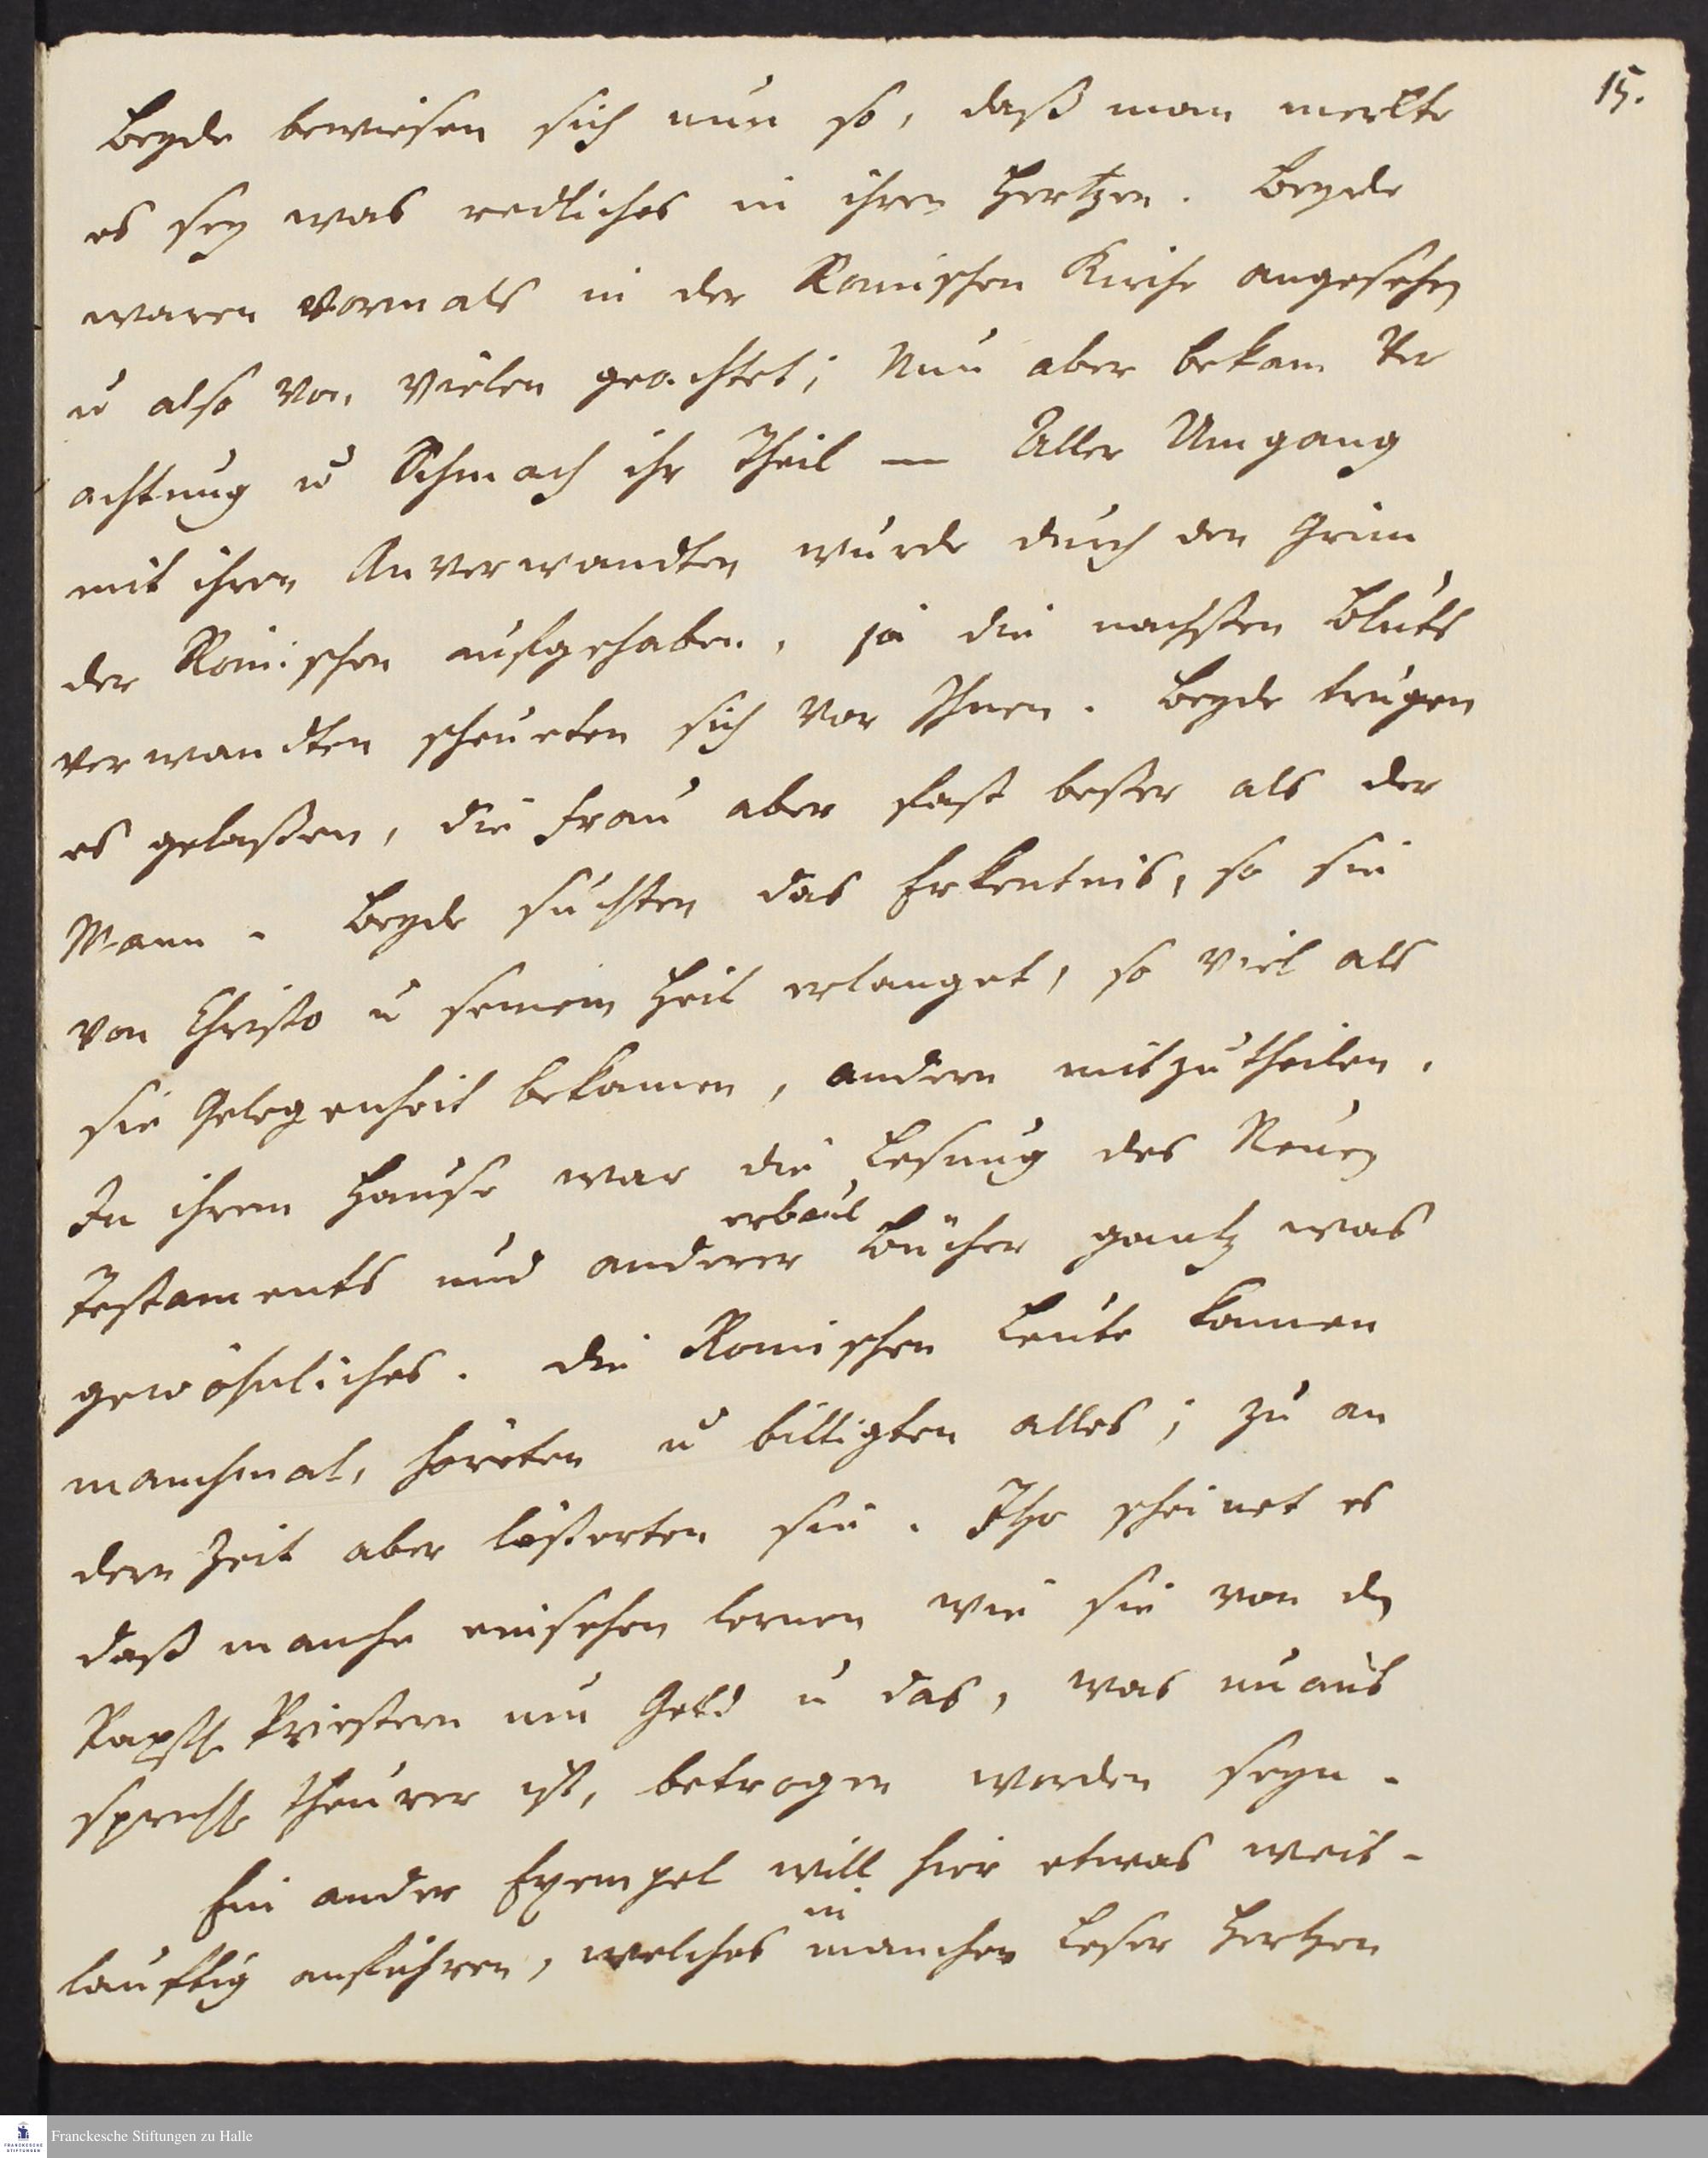 15.
Beyde bewiesen sich nun so, daß man merkte
es sey was redliches in ihren Hertzen. Beyde
waren vormals in der Romischen Kirche angesehen
u also von vielen geachtet; Nun aber bekam Ver
achtung u Schmach ihr Theil — Aller Umgang
mit ihren Anverwandten wurde durch den Grim
der Romischen aufgehaben, ja die nachsten Bluts
verwandten scheueten sich vor Ihnen. Beyde trugen
es gelaßen, die Frau aber fast beßer als der
Mann. Beyde suchten das Erkentnis, so sie
von Christo u seinem Heil erlanget, so viel als
sie Gelegenheit bekamen, andern mitzutheilen.
In ihrem Hause war die Lesung des Neuen
erbaul
Testaments und anderer Bücher gantz was
gewöhnliches. Die Romischen Leute kamen
manchmal, höreten u billigten alles; zu an
dern Zeit aber lästerten sie. Itzo scheinet es
daß manche einsehen lernen wie sie von den
Papstl. Priestern um Geld u das, was unaus
sprechl theurer ist, betrogen worden seyn.
Ein ander Exempel will hier etwas weit-
in
lauftig anführen, welches mancher Leser Hertzen
Franckesche Stiftungen zu Halle
FRANCKESCHE
STIFTUNGEN